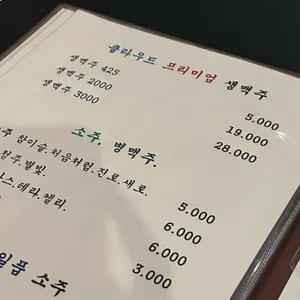 클라우드 프리미엄 생맥주
생맥주 425 5.000
생맥주 2000 19.000
생맥주 3000 28.000
소주, 병맥주.
주 참이슬.처음처럼.진로.새로. 5.000
청주.별빛. 6.000
스.테라.켈리. 6.000
일품 소주 3.000